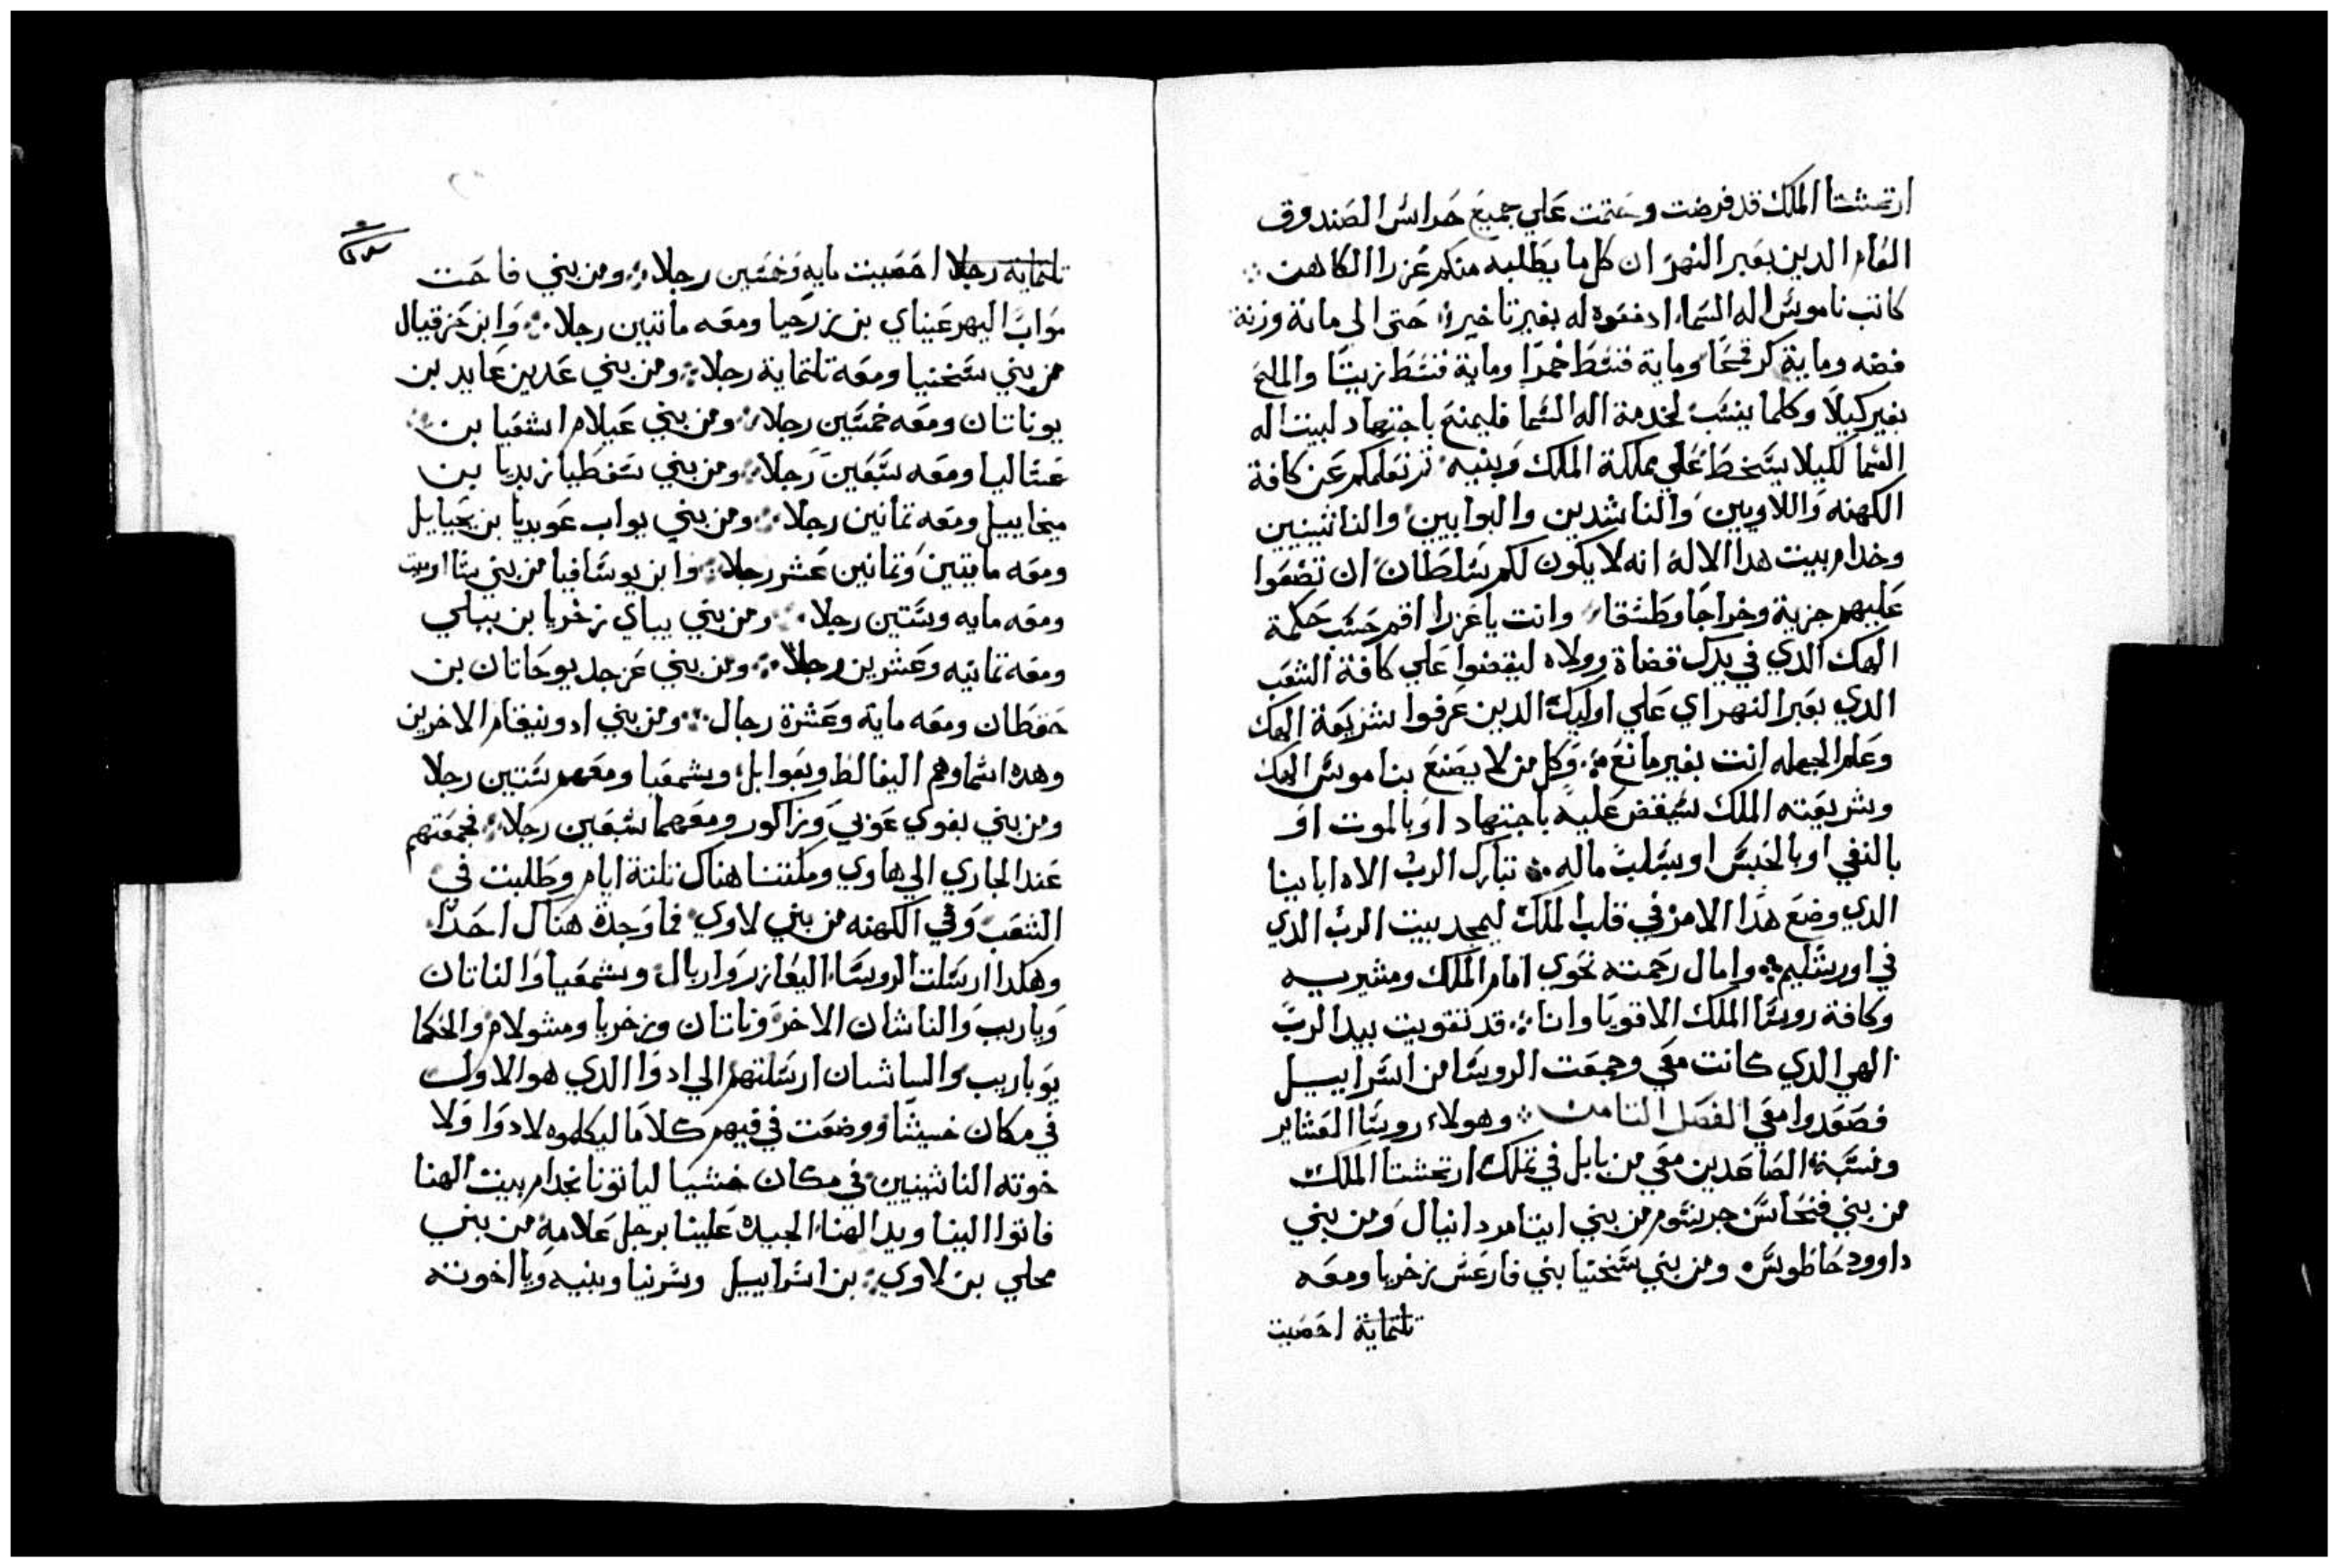 ارتحشثتا الملك قد فرضت وحتمت علي جميع حراس الصندوق
العام الدين بعبر النهر ان كل ما يطلبه منكم عزرا الكاهن
كاتب ناموس اله السما ادفعوه له بغير تاخير حتى الى مائة وزنة
فضه وماية كر قمحا وماية قسط خمرا وماية قسط زيتا والملح
بغير كيلا وكلما ينسب لخدمة اله السما فليمنح باجتهاد لبيت اله
السما لكيلا يسخط علي مملكة الملك وبنيه نعلمكم عن كافة
الكهنه واللاويين والناشدين والبوابين والناثينيين
وخدام بيت هدا الاله انه لا يكون لكم سلطان ان تضعوا
عليهم جزية وخراجا وطشقا وانت يا عزرا اقم حسب حكمة
الهك الدي في يدك قضاة وولاه ليقضوا علي كافة الشعب
الدي بعبر النهر اي علي اوليك الدين عرفوا شريعة الهك
وعلم الجهله انت بغير مانع وكل من لا يصنع بناموس الهك
وشريعته الملك سيقض عليه باجتهاد او بالموت او
بالنفي او بالحبس او بسلب ماله تبارك الرب الاه ابايينا
الدي وضع هدا الامر في قلب الملك ليمجد بيت الرب الدي
في اورشليم وامال رحمته نحوي امام الملك ومشيريه
وكافة روسا الملك الاقويا وانا قد تقويت بيد الرب
الهي الدي كانت معي وجمعت الروسا من اسراييل
فصعدوا معي الفصل التامن وهولاء روسا العشاير
ونسبة الصاعدين معي من بابل في تملك ارتحشتا الملك
من بني فنحاس جرشوم من بني ايتامر دانيال ومن بني
داوود حاطوس ومن بني سخنيا بني فارعش زخريا ومعه
تلتماية احصيت
تلتماية رجلا احصيت مايه وخمسين رجلا ومن بني فاحت
مواب اليهرعيناي بن زرحيا ومعه ماتيين رجلا وابن حزقيال
من بني سخنيا ومعه تلتماية رجلا ومن بني عدين عابد بن
يوناتان ومعه خمسين رجلا ومن بني عيلام اشعيا بن
عتاليا ومعه سبعين رجلا ومن بني سفطيا زبديا بن
ميخاييل ومعه تمانين رجلا ومن بني يواب عوبديا بن يحيايل
ومعه مايتين وتمانين عشر رجلا وابن يوسافيا من بني
ومعه مايه وستين رجلا ومن بني بباي زخريا بن ببلي
ومعه تمانيه وعشرين رجلا ومن بني عزجد يوحاتان بن
حقطان ومعه ماية وعشرة رجال ومن بني ادونيقام الاخرين
وهده اسماوهم اليفالط ويعوايل وشمعيا ومعهم ستين رجلا
ومن بني بغوي عوبي وزاكور ومعهما سبعين رجلا فجمعتهم
عند الجاري الي هاوي ومكتنا هناك تلتة ايام وطلبت في
الشعب وفي الكهنه من بني لاوي فما وجدة هناك احدا
وهكدا ارسلت الروسا اليعازر واريال وشمعيا والناتان
وياريب والناشان الاخر وناتان وزخريا ومشولام والحكما
يوياريب ارسلتهم الي ادوا الدي هو الاول
في مكان خسيثا ووضعت في فيهم كلاما ليكلموه لادوا ولا
خوته الناثينيين في مكان خسيثا لياتونا بخدام بيت الهنا
فاتوا الينا ويد الهنا الجيده علينا برجل علامه من بني
محلي بن لاوي بن اسراييل وشربيا وبنيه ويا اخوته